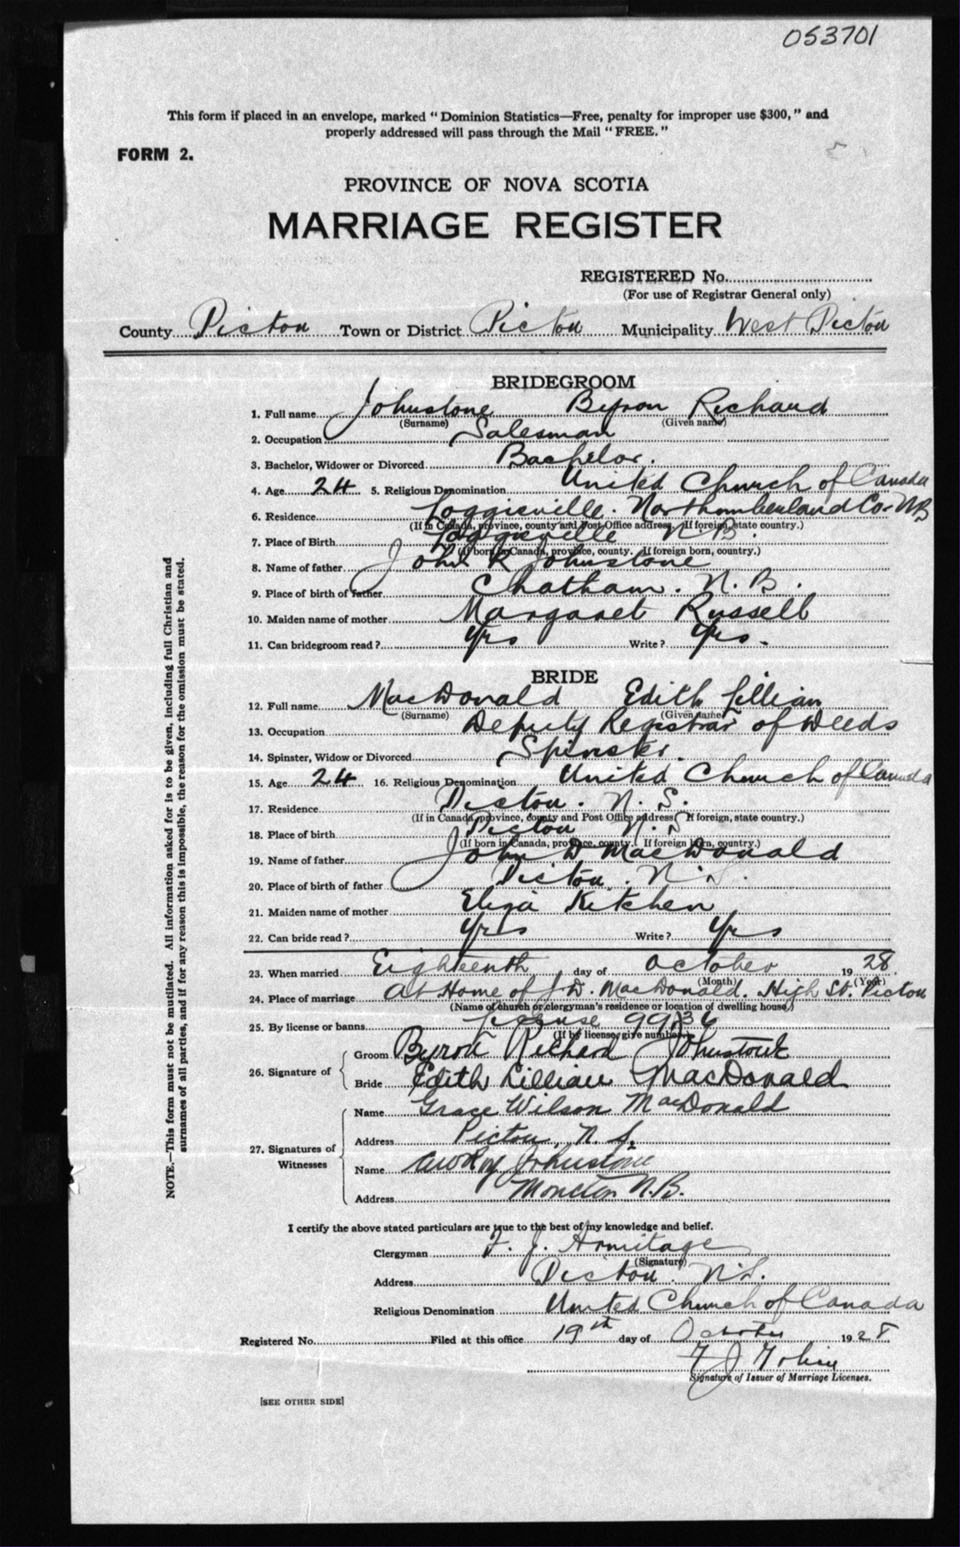 053701
This form if placed in an envelope, marked "Dominion Statistics—Free, penalty for improper use $300," and
properly addressed will pass through the Mail "FREE."
FORM 2.
PROVINCE OF NOVA SCOTIA
MARRIAGE REGISTER
REGISTERED No.
(For use of Registrar General only)
County Pictou Town or District Pictou Municipality West Pictou
BRIDEGROOM
1. Full name Johnstone Byron Richard
(Surname) (Given name)
2. Occupation Salesman
3. Bachelor, Widower or Divorced Bachelor.
4. Age 24 5. Religious Denomination United Church of Canada
6. Residence Loggieville. Northumberland Co. NB
(If in Canada, province, county and Post Office address, If foreign, state country.)
7. Place of Birth Loggieville N.B.
(If born in Canada, province, county. If foreign born, country.)
8. Name of father John R Johnstone
9. Place of birth of father Chatham. N.B.
10. Maiden name of mother Margaret Russell
11. Can bridegroom read? Yes Write? Yes.
BRIDE
12. Full name MacDonald Edith Lillian
(Surname) (Given name)
13. Occupation Deputy Registrar of Deeds
14. Spinster, Widow or Divorced Spinster.
15. Age 24 16. Religious Denomination United Church of Canada
17. Residence Pictou. N.S.
(If in Canada, province, county and Post Office address, If foreign, state country.)
18. Place of birth Pictou N.S
(If born in Canada, province, county. If foreign born, country.)
19. Name of father John D MacDonald
20. Place of birth of father Pictou. N.S.
21. Maiden name of mother Eliza Kitchen
22. Can bride read? Yes Write? Yes
23. When married Eighteenth day of October 1928.
(Month) (Year)
24. Place of marriage At Home of J.D. MacDonald. High St. Pictou
(Name of church or clergyman's residence or location of dwelling house)
25. By license or banns License 99136
(If by license, give number)
26. Signature of Groom Byron Richard Johnstone
Bride Edith Lillian MacDonald
27. Signatures of Witnesses Name Grace Wilson MacDonald
Address Pictou, N.S.
Name Johnstone
Address Moncton N.B.
I certify the above stated particulars are true to the best of my knowledge and belief.
Clergyman F. J. Armitage
(Signature)
Address Pictou. N.S.
Religious Denomination United Church of Canada
Registered No. Filed at this office 19th day of October 1928
Signature of Issuer of Marriage Licenses.
[SEE OTHER SIDE]
NOTE.—This form must not be mutilated. All information asked for is to be given, including full Christian and
surnames of all parties, and if for any reason this is impossible, the reason for the omission must be stated.